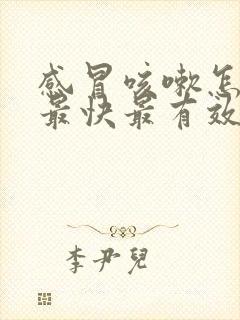 感冒咳嗽怎
最快最有效
李尹兒